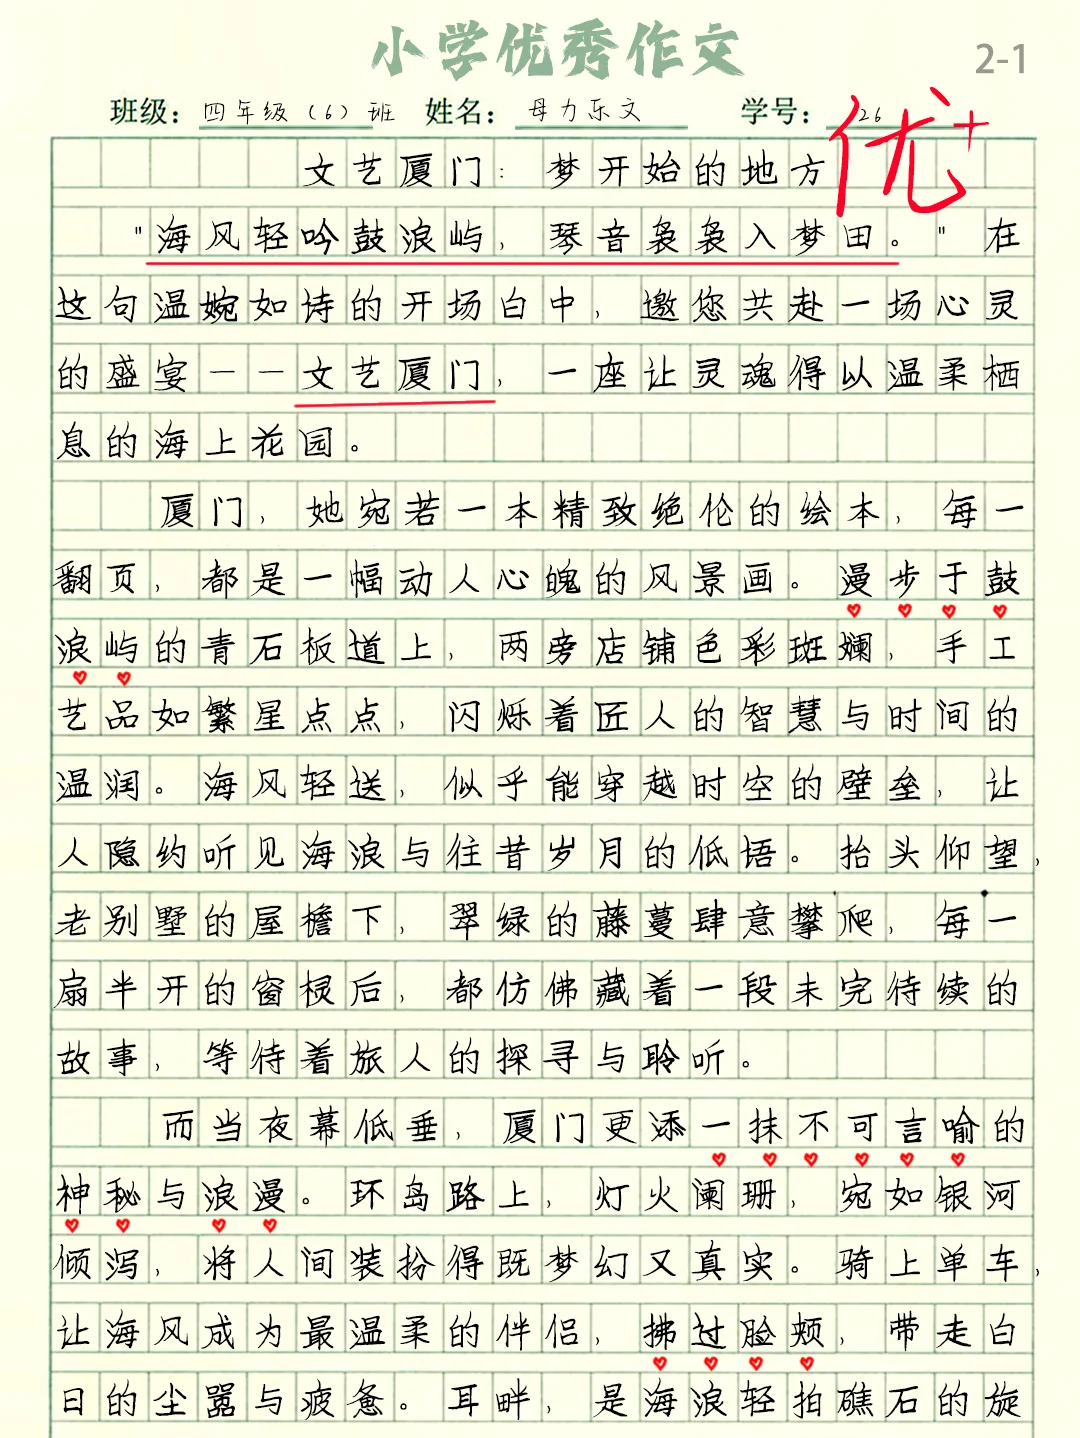 小学优秀作文
2-1
班级：四年级（6）班 姓名：母力乐文 学号：26
优+
文艺厦门：梦开始的地方
"海风轻吟鼓浪屿，琴音袅袅入梦田。"在
这句温婉如诗的开场白中，邀您共赴一场心灵
的盛宴——文艺厦门，一座让灵魂得以温柔栖
息的海上花园。
厦门，她宛若一本精致绝伦的绘本，每一
翻页，都是一幅动人心魄的风景画。漫步于鼓
浪屿的青石板道上，两旁店铺色彩斑斓，手工
艺品如繁星点点，闪烁着匠人的智慧与时间的
温润。海风轻送，似乎能穿越时空的壁垒，让
人隐约听见海浪与往昔岁月的低语。抬头仰望，
老别墅的屋檐下，翠绿的藤蔓肆意攀爬，每一
扇半开的窗棂后，都仿佛藏着一段未完待续的
故事，等待着旅人的探寻与聆听。
而当夜幕低垂，厦门更添一抹不可言喻的
神秘与浪漫。环岛路上，灯火阑珊，宛如银河
倾泻，将人间装扮得既梦幻又真实。骑上单车，
让海风成为最温柔的伴侣，拂过脸颊，带走白
日的尘嚣与疲惫。耳畔，是海浪轻拍礁石的旋